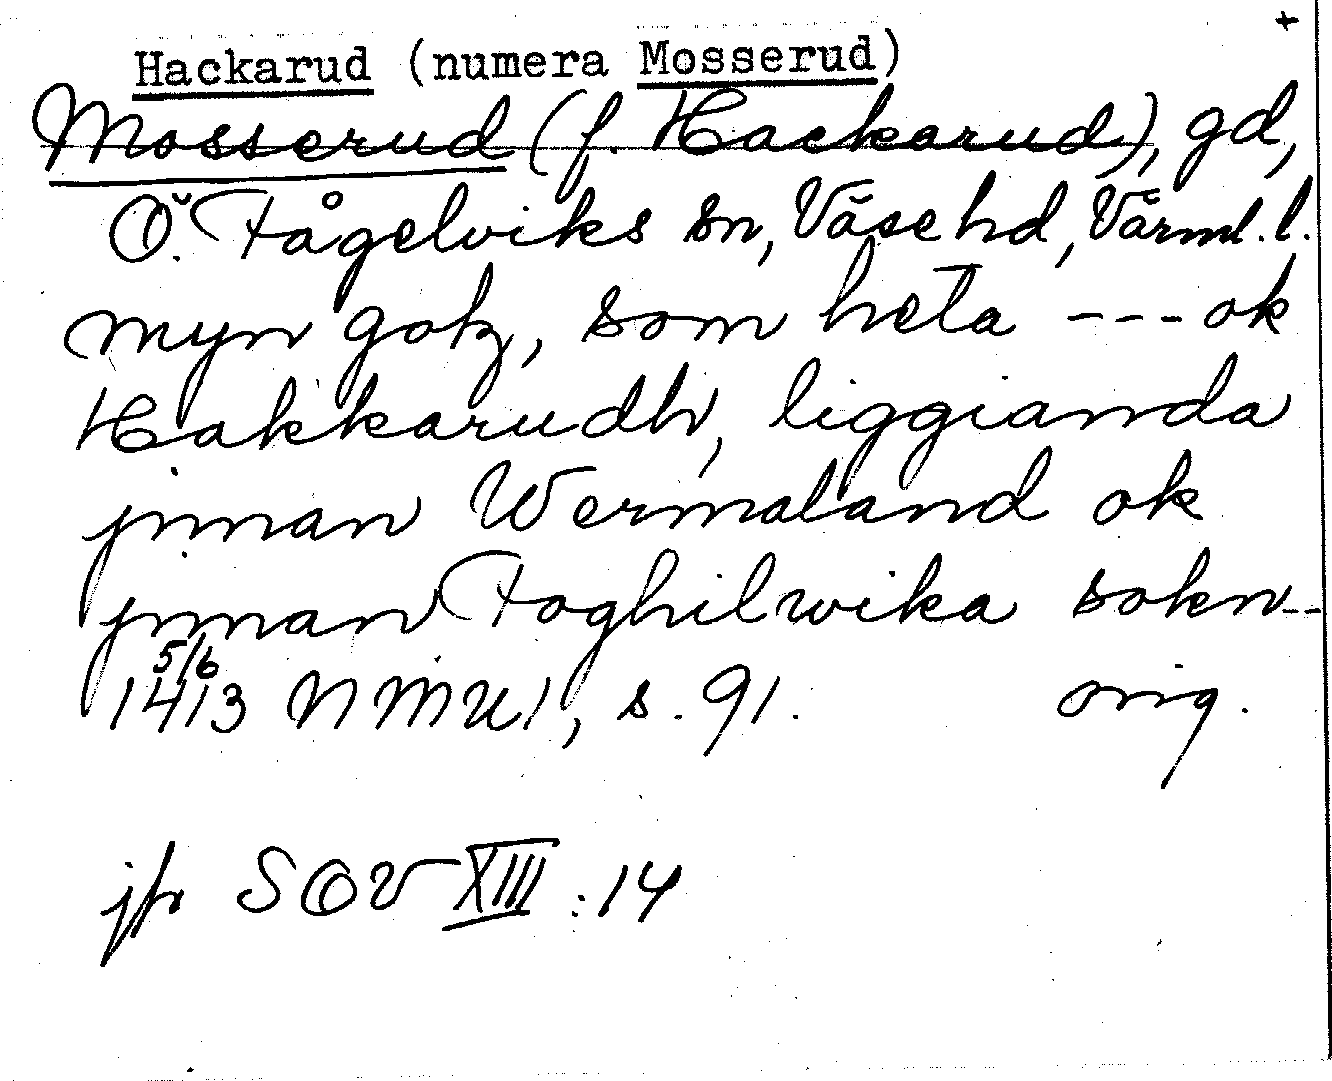 +
Hackarud (numera Mosserud)
Mosserud (f. Hackarud), gd,
Ö. Fågelviks sn, Väse hd, Värml. l.
myn gotz, som heta --- ok
Hakkarudh, liggianda
jnnan Wermaland ok
jnnan Foghilwika sokn --
5/6
1413 NMU 1, s. 91. orig.
jfr SOV XIII : 14